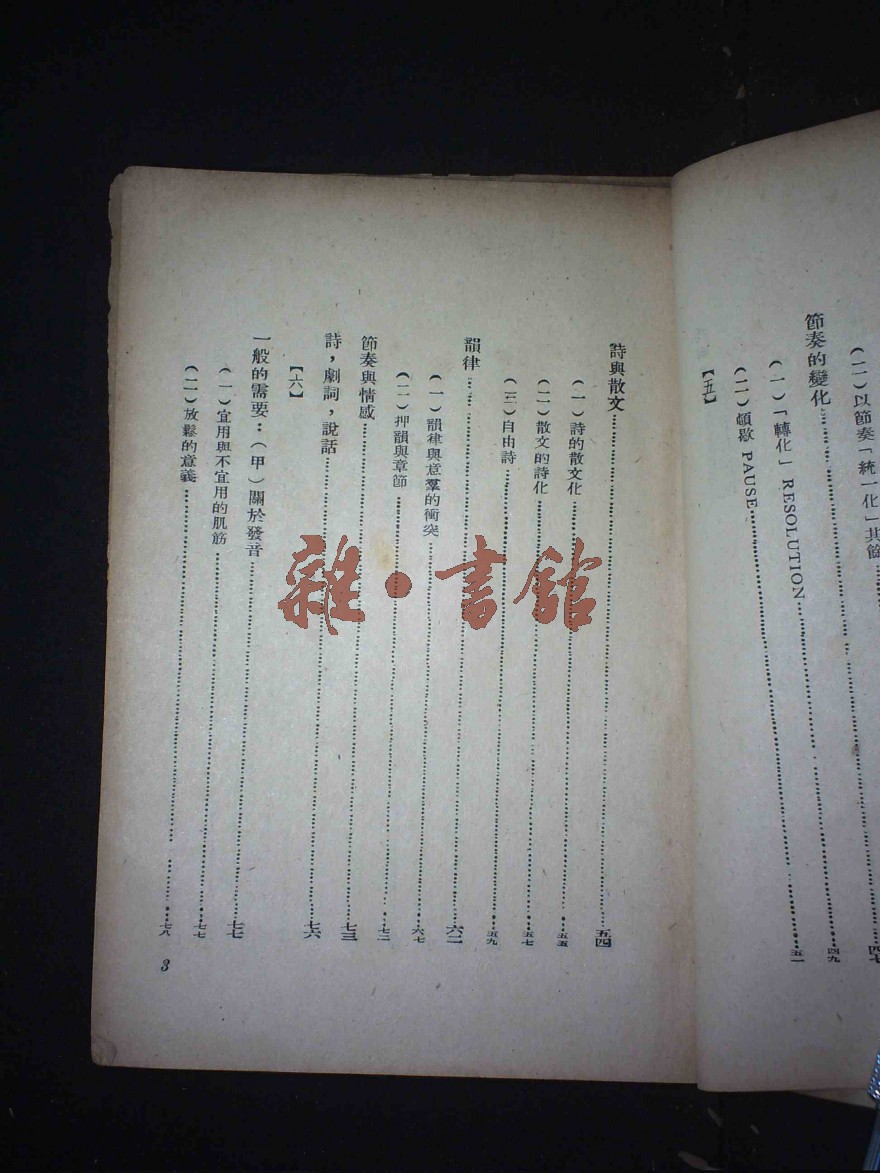 (二)以節奏「統一化」其節
四七
節奏的變化
四九
(一)「轉化」 RESOLUTION
五一
(二)頓歇 PAUSE
【五】
詩與散文
五四
(一)詩的散文化
五五
(二)散文的詩化
五七
(三)自由詩
五九
韻律
六二
(一)韻律與意羣的衝突
六七
(二)押韻與章節
七二
節奏與情感
七三
詩,劇詞,說話
七六
【六】
一般的需要:(甲)關於發音
七七
(一)宜用與不宜用的肌筋
七七
(二)放鬆的意義
七八
3
雜·書館